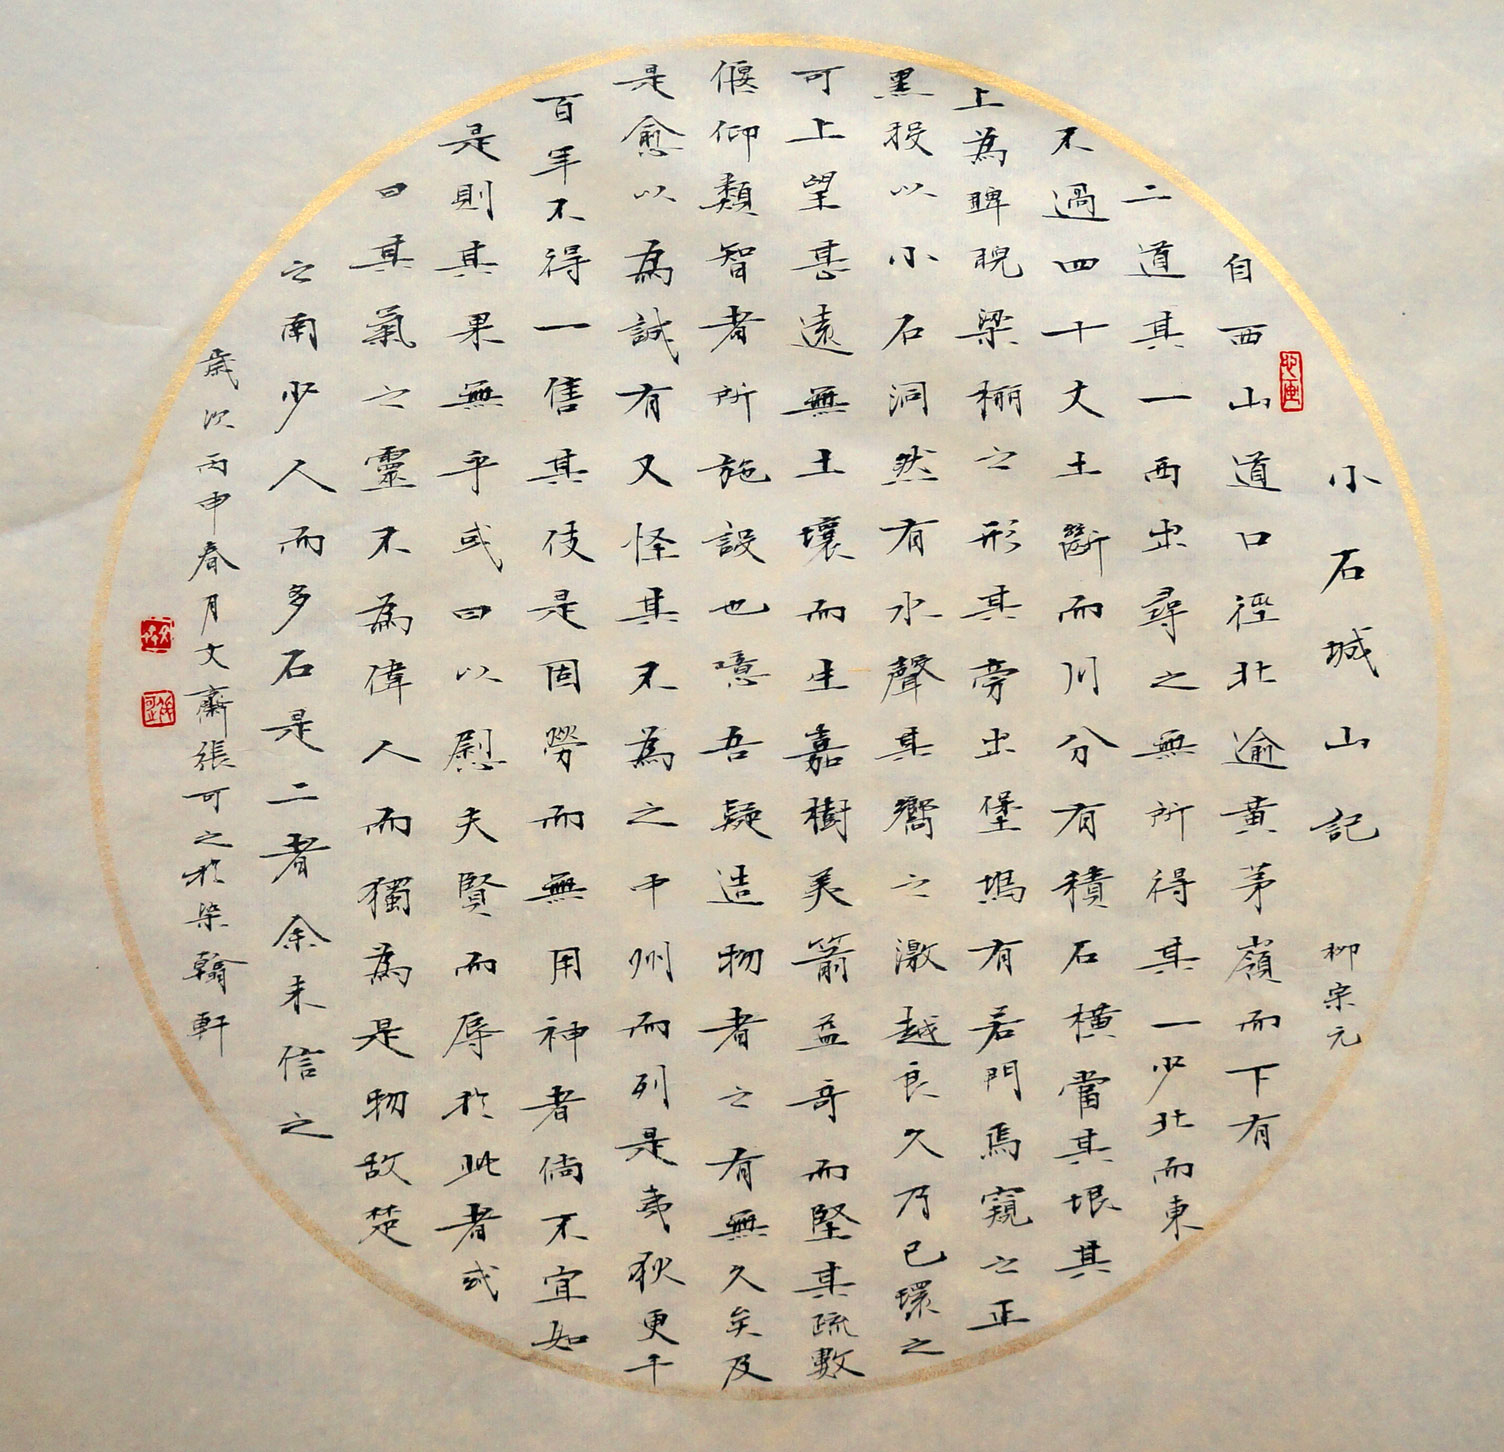 小石城山記 柳宗元
自西山道口徑北逾黃茅嶺而下有
二道其一西出尋之無所得其一少北而東
不過四十丈土斷而川分有積石橫當其垠其
上為睥睨梁欐之形其旁出堡塢有若門焉窺之正
黑投以小石洞然有水聲其響之激越良久乃已環之
可上望甚遠無土壤而生嘉樹美箭益奇而堅其疏數
偃仰類智者所施設也噫吾疑造物者之有無久矣及
是愈以為誠有又怪其不為之中州而列是夷狄更千
百年不得一售其伎是固勞而無用神者倘不宜如
是則其果無乎或曰以慰夫賢而辱於此者或
曰其氣之靈不為偉人而獨為是物故楚
之南少人而多石是二者余未信之
歲次丙申春月文齋張可之於染翰軒